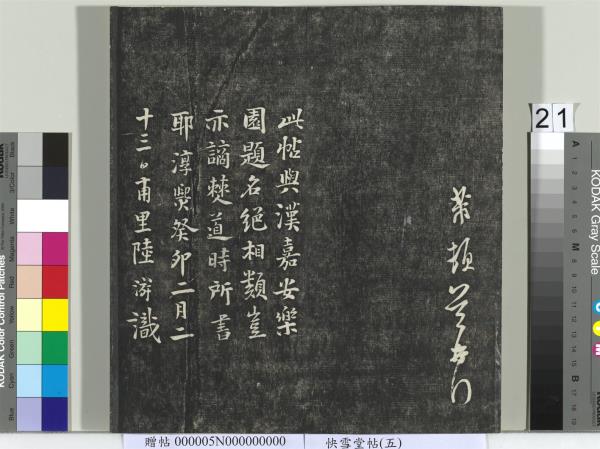 此帖與漢嘉安樂
園題名絕相類豈
亦謫僰道時所書
耶淳熙癸卯二月二
十三日甫里陸游識
21
KODAK Gray Scale
A 1 2 3 4 5 6 M 8 9 10 11 12 13 14 15 B 17 18 19
C
Y
M
KODAK Color Control Patches
Black
White
Magenta
Red
Yellow
Green
Cyan
Blue
贈帖 000005N000000000
快雪堂帖(五)